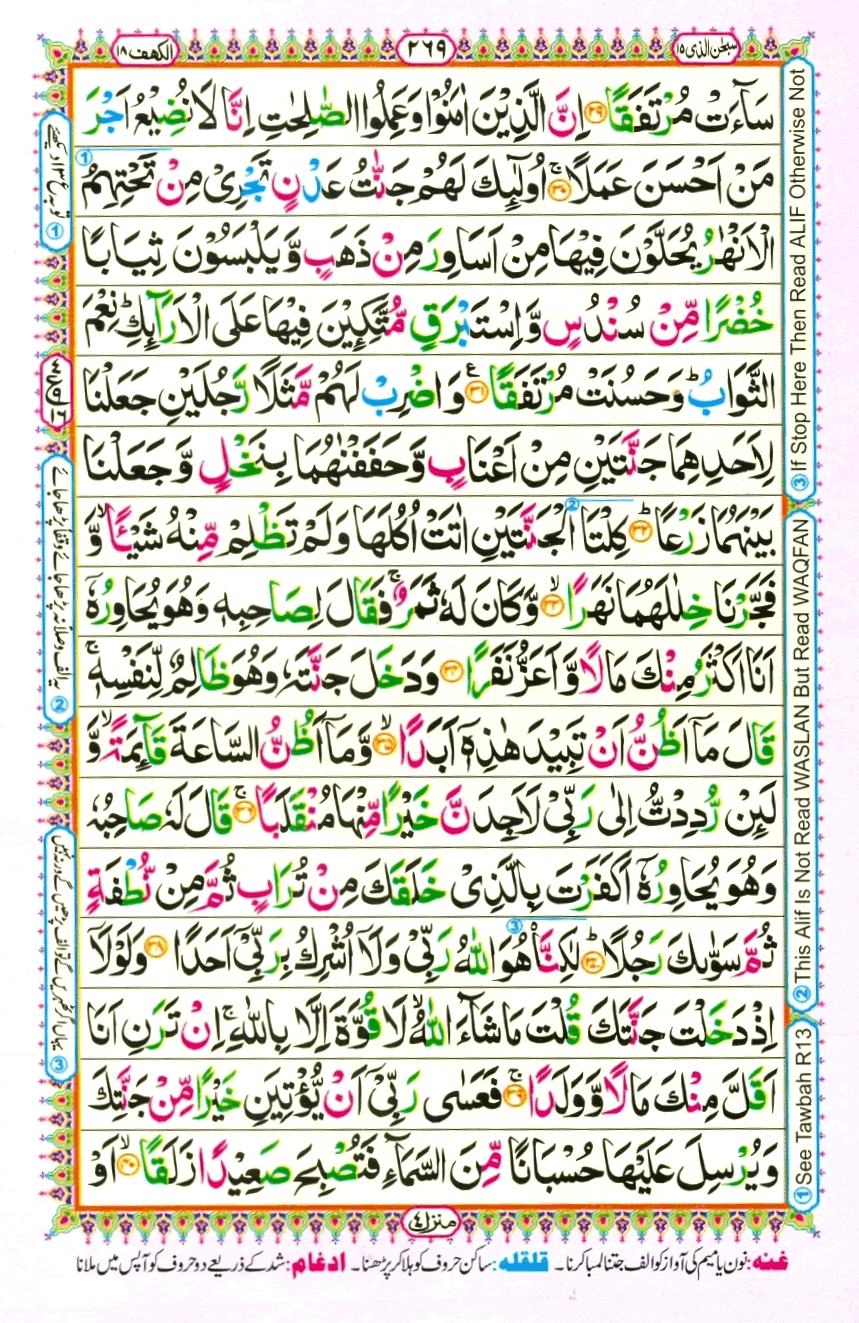 سبحٰن الذی ۱۵
۲۶۹
الكهف ۱۸
سَآءَتْ مُرْتَفَقًا ﴿۲۹﴾ اِنَّ الَّذِيْنَ اٰمَنُوْا وَعَمِلُوا الصّٰلِحٰتِ اِنَّا لَا نُضِيْعُ اَجْرَ
مَنْ اَحْسَنَ عَمَلًا ۚ﴿۳۰﴾ اُولٰٓئِكَ لَهُمْ جَنّٰتُ عَدْنٍ تَجْرِيْ مِنْ تَحْتِهِمُ
الْاَنْهٰرُ يُحَلَّوْنَ فِيْهَا مِنْ اَسَاوِرَ مِنْ ذَهَبٍ وَّيَلْبَسُوْنَ ثِيَابًا
خُضْرًا مِّنْ سُنْدُسٍ وَّاِسْتَبْرَقٍ مُّتَّكِـِٕيْنَ فِيْهَا عَلَى الْاَرَآئِكِ ؕ نِعْمَ
الثَّوَابُ ؕ وَحَسُنَتْ مُرْتَفَقًا ﴿۳۱﴾ ع وَاضْرِبْ لَهُمْ مَّثَلًا رَّجُلَيْنِ جَعَلْنَا
لِاَحَدِهِمَا جَنَّتَيْنِ مِنْ اَعْنَابٍ وَّحَفَفْنٰهُمَا بِنَخْلٍ وَّجَعَلْنَا
بَيْنَهُمَا زَرْعًا ؕ﴿۳۲﴾ كِلْتَا الْجَنَّتَيْنِ اٰتَتْ اُكُلَهَا وَلَمْ تَظْلِمْ مِّنْهُ شَيْـًٔا ۙ وَّ
فَجَّرْنَا خِلٰلَهُمَا نَهَرًا ۙ﴿۳۳﴾ وَّكَانَ لَهٗ ثَمَرٌ ۚ فَقَالَ لِصَاحِبِهٖ وَهُوَ يُحَاوِرُهٗٓ
اَنَا اَكْثَرُ مِنْكَ مَالًا وَّاَعَزُّ نَفَرًا ﴿۳۴﴾ وَدَخَلَ جَنَّتَهٗ وَهُوَ ظَالِمٌ لِّنَفْسِهٖ ۚ
قَالَ مَاۤ اَظُنُّ اَنْ تَبِيْدَ هٰذِهٖۤ اَبَدًا ۙ﴿۳۵﴾ وَّمَاۤ اَظُنُّ السَّاعَةَ قَآئِمَةً ۙ وَّ
لَئِنْ رُّدِدْتُّ اِلٰى رَبِّيْ لَاَجِدَنَّ خَيْرًا مِّنْهَا مُنْقَلَبًا ۚ﴿۳۶﴾ قَالَ لَهٗ صَاحِبُهٗ
وَهُوَ يُحَاوِرُهٗۤ اَكَفَرْتَ بِالَّذِيْ خَلَقَكَ مِنْ تُرَابٍ ثُمَّ مِنْ نُّطْفَةٍ
ثُمَّ سَوّٰىكَ رَجُلًا ؕ﴿۳۷﴾ لٰكِنَّا۠ هُوَ اللّٰهُ رَبِّيْ وَلَاۤ اُشْرِكُ بِرَبِّيْۤ اَحَدًا ﴿۳۸﴾ وَلَوْلَاۤ
اِذْ دَخَلْتَ جَنَّتَكَ قُلْتَ مَا شَآءَ اللّٰهُ ۙ لَا قُوَّةَ اِلَّا بِاللّٰهِ ۚ اِنْ تَرَنِ اَنَا
اَقَلَّ مِنْكَ مَالًا وَّوَلَدًا ۚ﴿۳۹﴾ فَعَسٰى رَبِّيْۤ اَنْ يُّؤْتِيَنِ خَيْرًا مِّنْ جَنَّتِكَ
وَيُرْسِلَ عَلَيْهَا حُسْبَانًا مِّنَ السَّمَآءِ فَتُصْبِحَ صَعِيْدًا زَلَقًا ۙ﴿۴۰﴾ اَوْ
منزل ۴
غنہ: نون یا میم کی آواز کو الف جتنا لمبا کرنا۔ قلقلہ: ساکن حروف کو ہلا کر پڑھنا۔ ادغام: شد کے ذریعے دو حروف کو آپس میں ملانا
③ If Stop Here Then Read ALIF Otherwise Not
② This Alif Is Not Read WASLAN But Read WAQFAN
① See Tawbah R13
①
یہ الف وصلاً نہ پڑھا جائے وقفاً پڑھا جائے ②
یہاں اگر ٹھہریں گے تو الف پڑھیں گے ورنہ نہیں ③